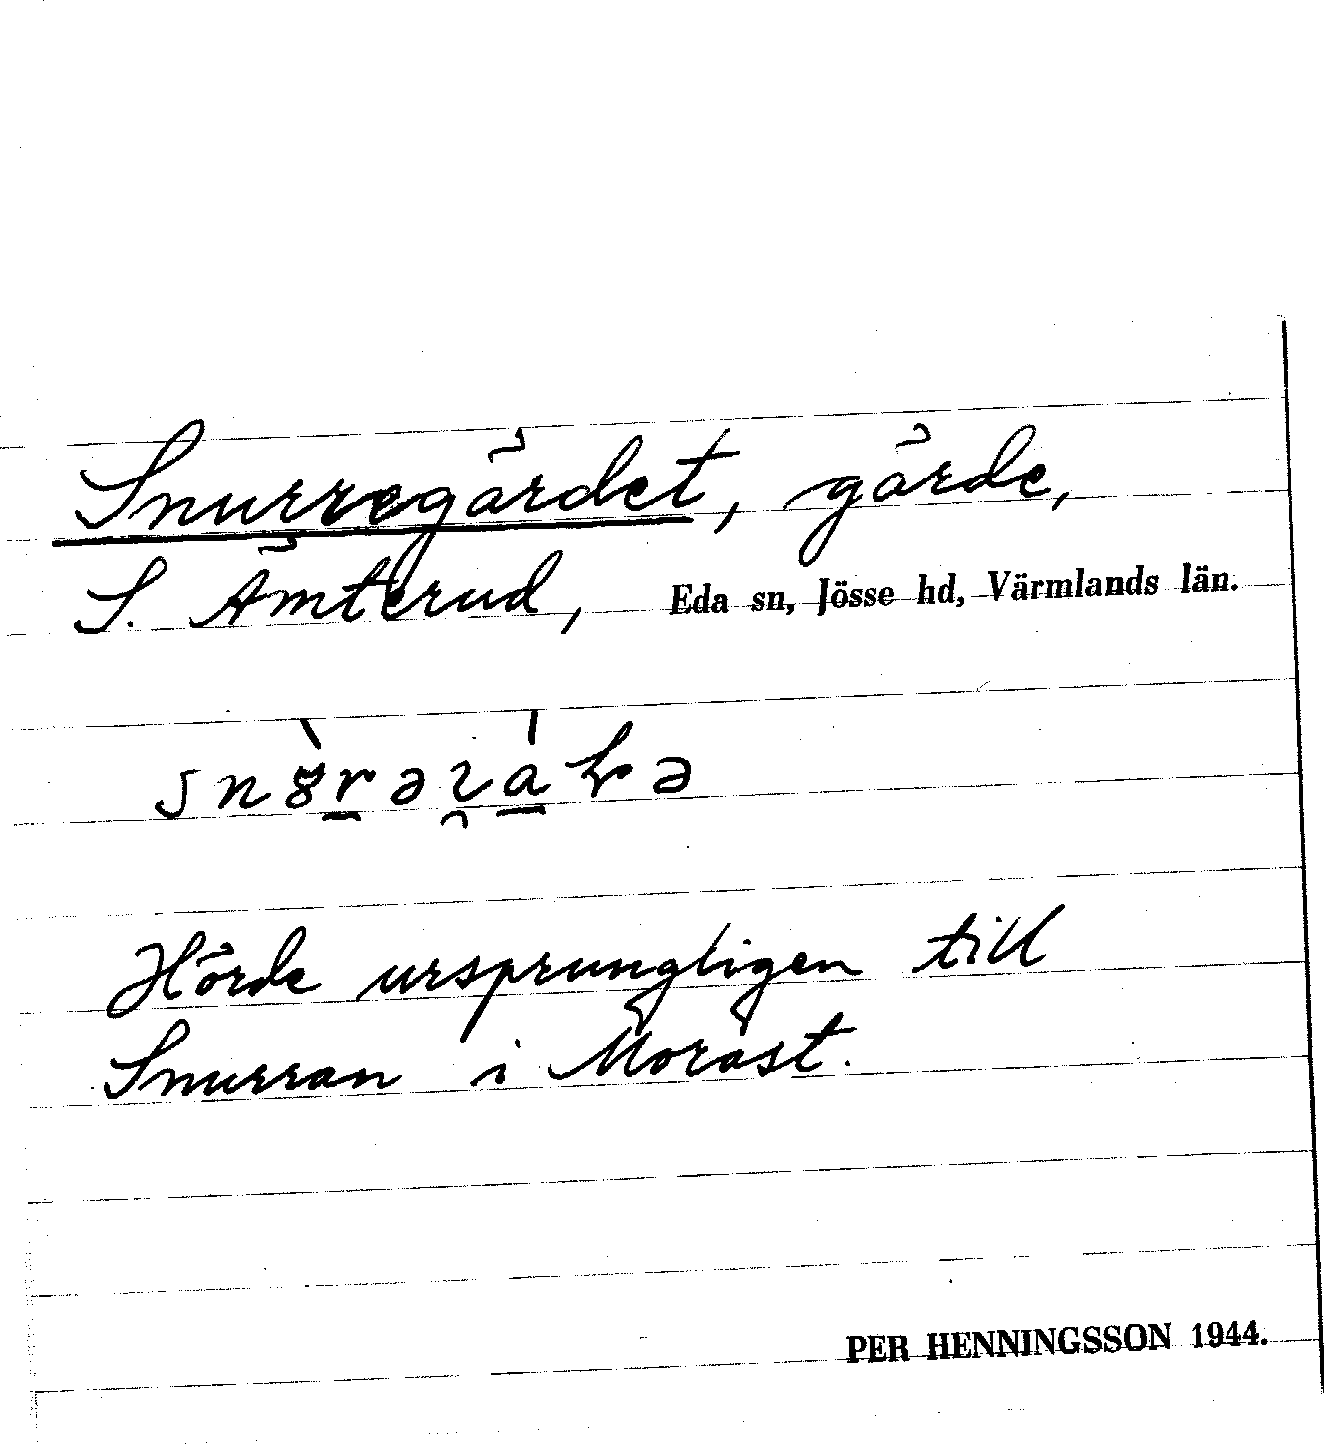 Snurregärdet, gärde,
S. Ämterud, Eda sn, Jösse hd, Värmlands län.
Hörde ursprungligen till
Snurran i Morast.
PER HENNINGSSON 1944.